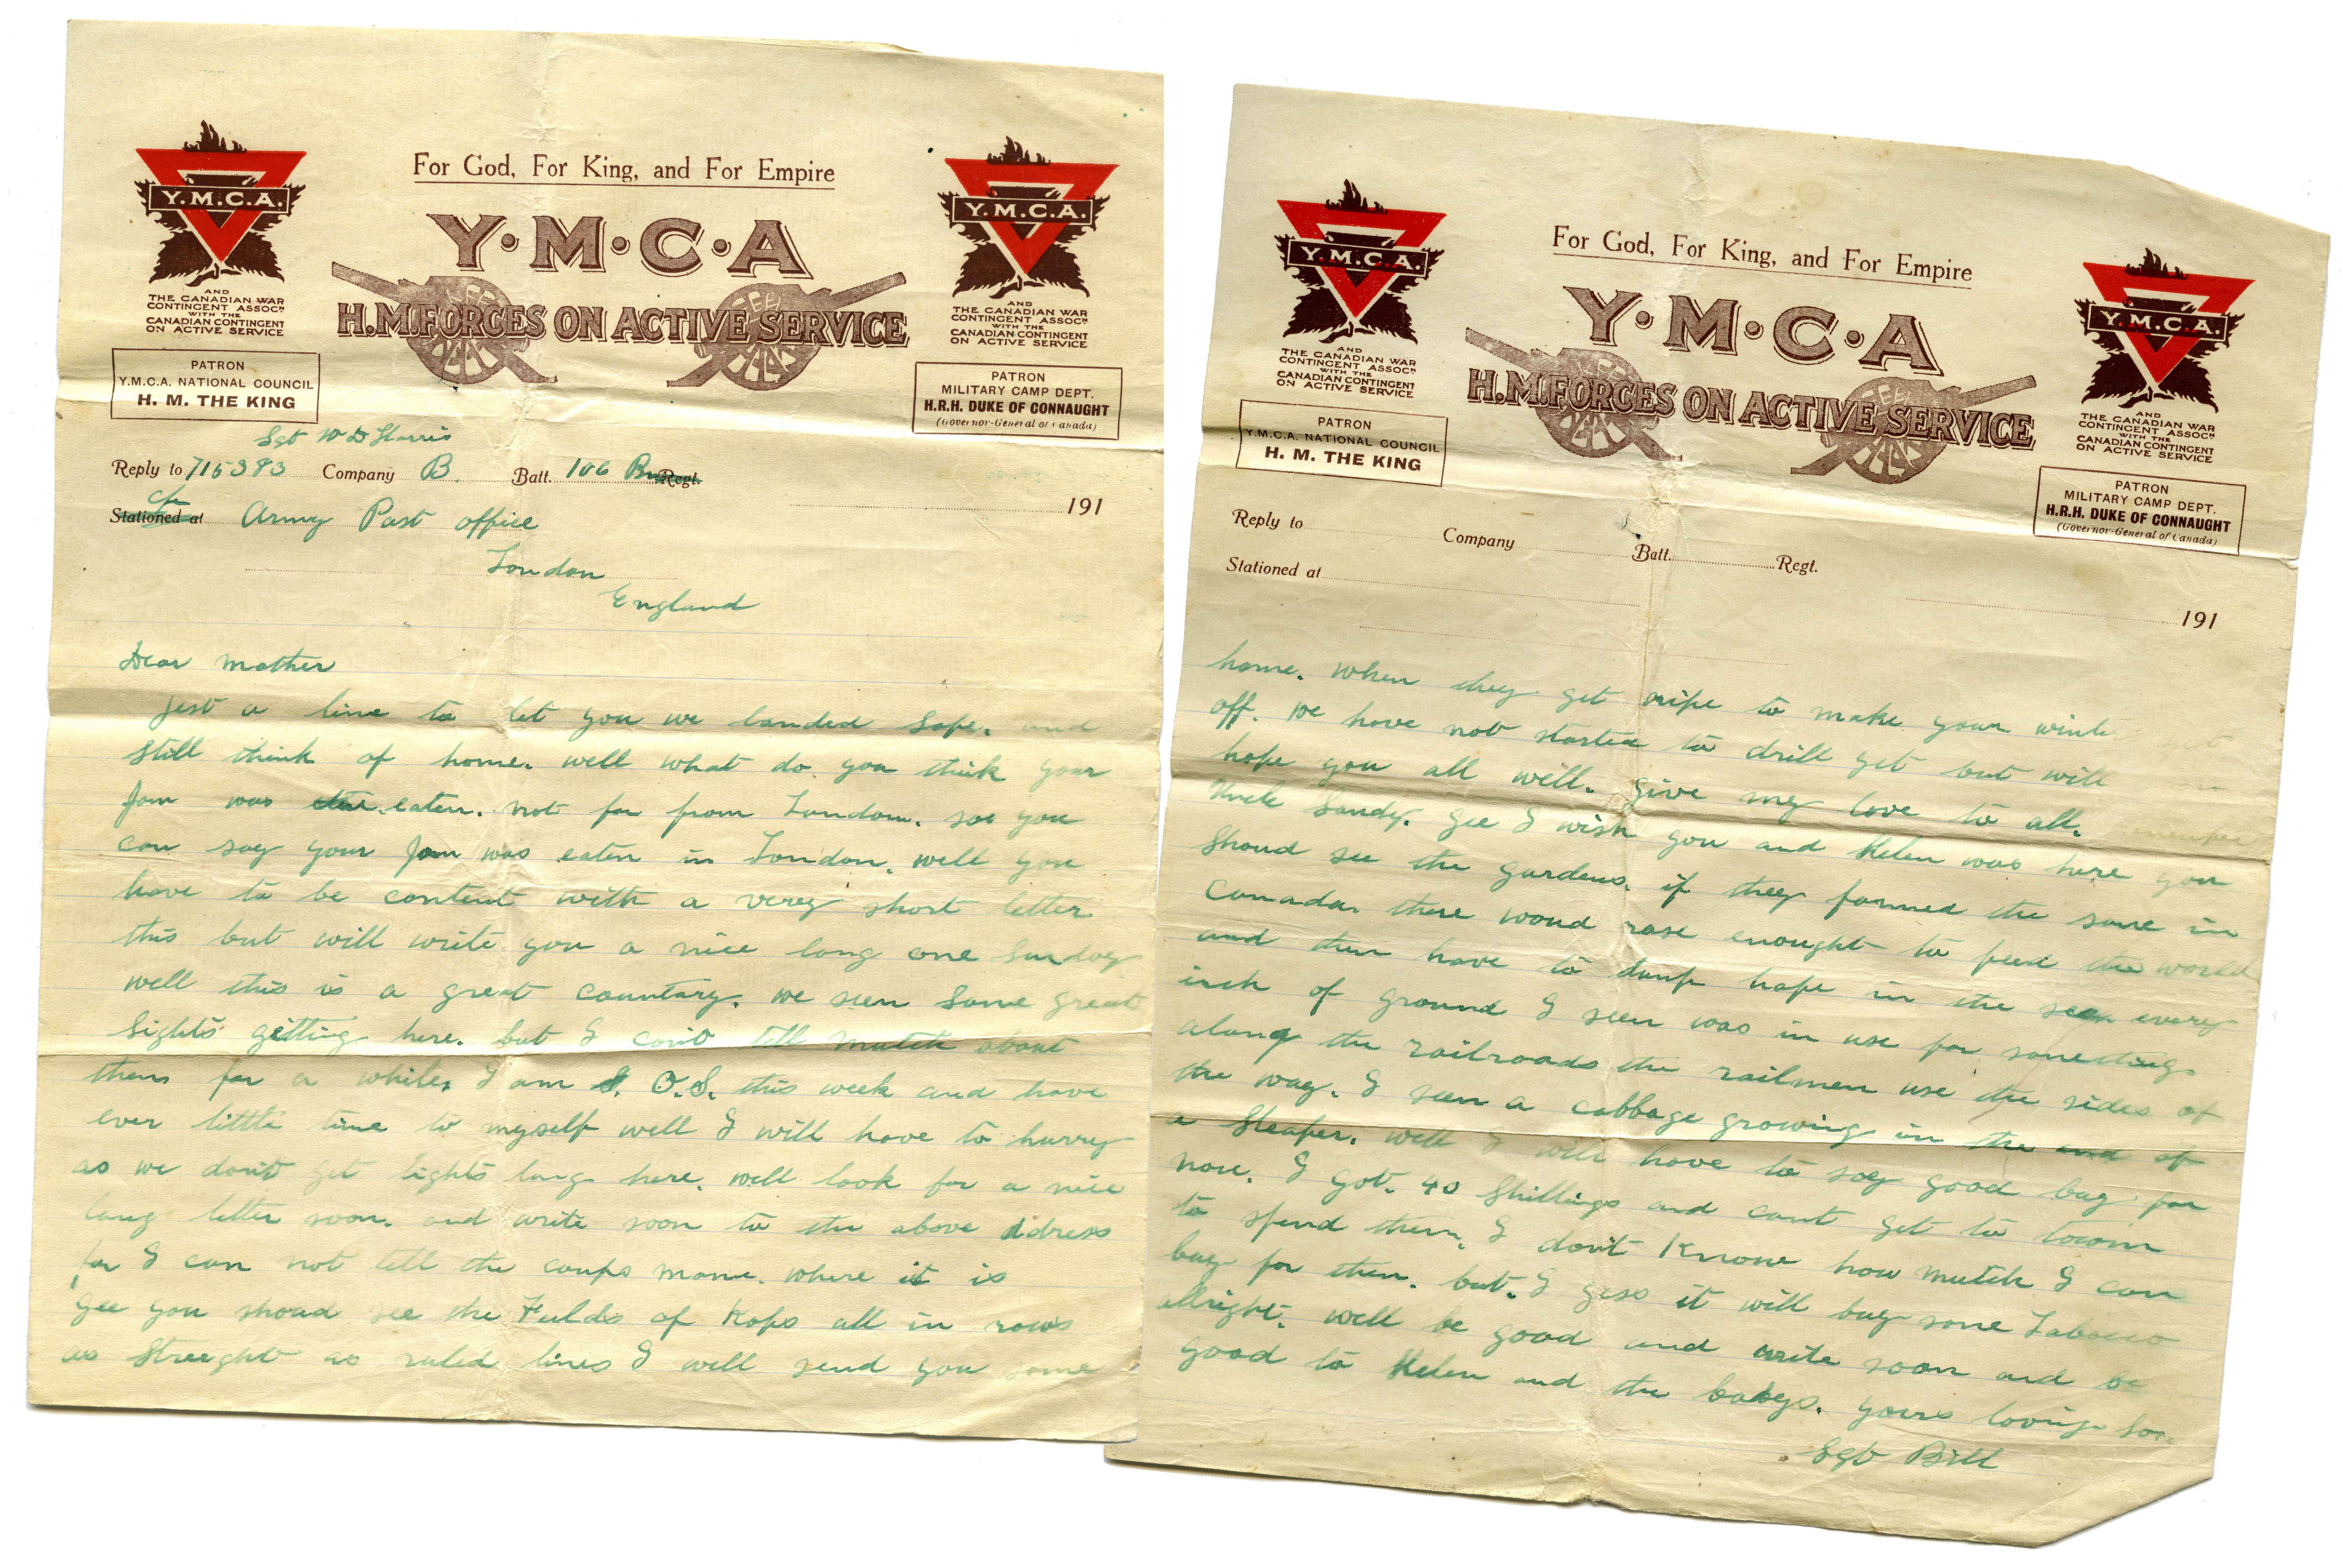 For God, For King, and For Empire
Y.M.C.A.
AND
THE CANADIAN WAR
CONTINGENT ASSOCN
WITH THE
CANADIAN CONTINGENT
ON ACTIVE SERVICE
Y·M·C·A
H.M.FORCES ON ACTIVE SERVICE
Y.M.C.A.
AND
THE CANADIAN WAR
CONTINGENT ASSOCN
WITH THE
CANADIAN CONTINGENT
ON ACTIVE SERVICE
PATRON
Y.M.C.A. NATIONAL COUNCIL
H. M. THE KING
PATRON
MILITARY CAMP DEPT.
H.R.H. DUKE OF CONNAUGHT
(Governor-General of Canada)
Sgt W D Harris
Reply to 715393 Company B. Batt. 106 Bn Regt.
Stationed at Army Post office
191
London
England
Dear mother
Jest a line to let you we landed safe. and
still think of home. well what do you think your
Jam was eaten. not far from London. so you
can say your Jam was eaten in London. well you
have to be content with a very short letter
this but will write you a nice long one Sunday
well this is a great countary. we seen some great
sights getting here. but I con't tell mutch about
them for a while. I am O.S. this week and have
ever little time to myself well I will have to hurry
as we don't get lights long here. well look for a nice
long letter soon. and write soon to the above adress
for I can not tell the camps mame. where it is
gee you shoud see the Fields of Hops all in rows
as streeght as ruled lines I will send you some
For God, For King, and For Empire
Y.M.C.A.
AND
THE CANADIAN WAR
CONTINGENT ASSOCN
WITH THE
CANADIAN CONTINGENT
ON ACTIVE SERVICE
Y·M·C·A
H.M.FORCES ON ACTIVE SERVICE
Y.M.C.A.
AND
THE CANADIAN WAR
CONTINGENT ASSOCN
WITH THE
CANADIAN CONTINGENT
ON ACTIVE SERVICE
PATRON
Y.M.C.A. NATIONAL COUNCIL
H. M. THE KING
PATRON
MILITARY CAMP DEPT.
H.R.H. DUKE OF CONNAUGHT
(Governor-General of Canada)
Reply to Company Batt. Regt.
Stationed at
191
home. when they get ripe to make your winte
off. we have not started to drill yet but will
hope you all well. give my love to all.
Uncle Sandy. gee I wish you and Helen was here you
shoud see the gardens. if they farmed the same in
Canada. there woud rase enought to feed the world
and then have to dump hafe in the sea every
inch of ground I seen was in use for something.
along the railroads the railmen use the sides of
the way. I seen a cabbage growing in the end of
a Sleaper. well I will have to say good buy for
now. I got. 40 Shillings and cant get to town
to spend them. I don't Know how mutch I can
buy for them. but. I gess it will buy some Tabacco
allright. well be good and write soon and be
good to Helen and the babys. yours loving Son
Sgt Bill